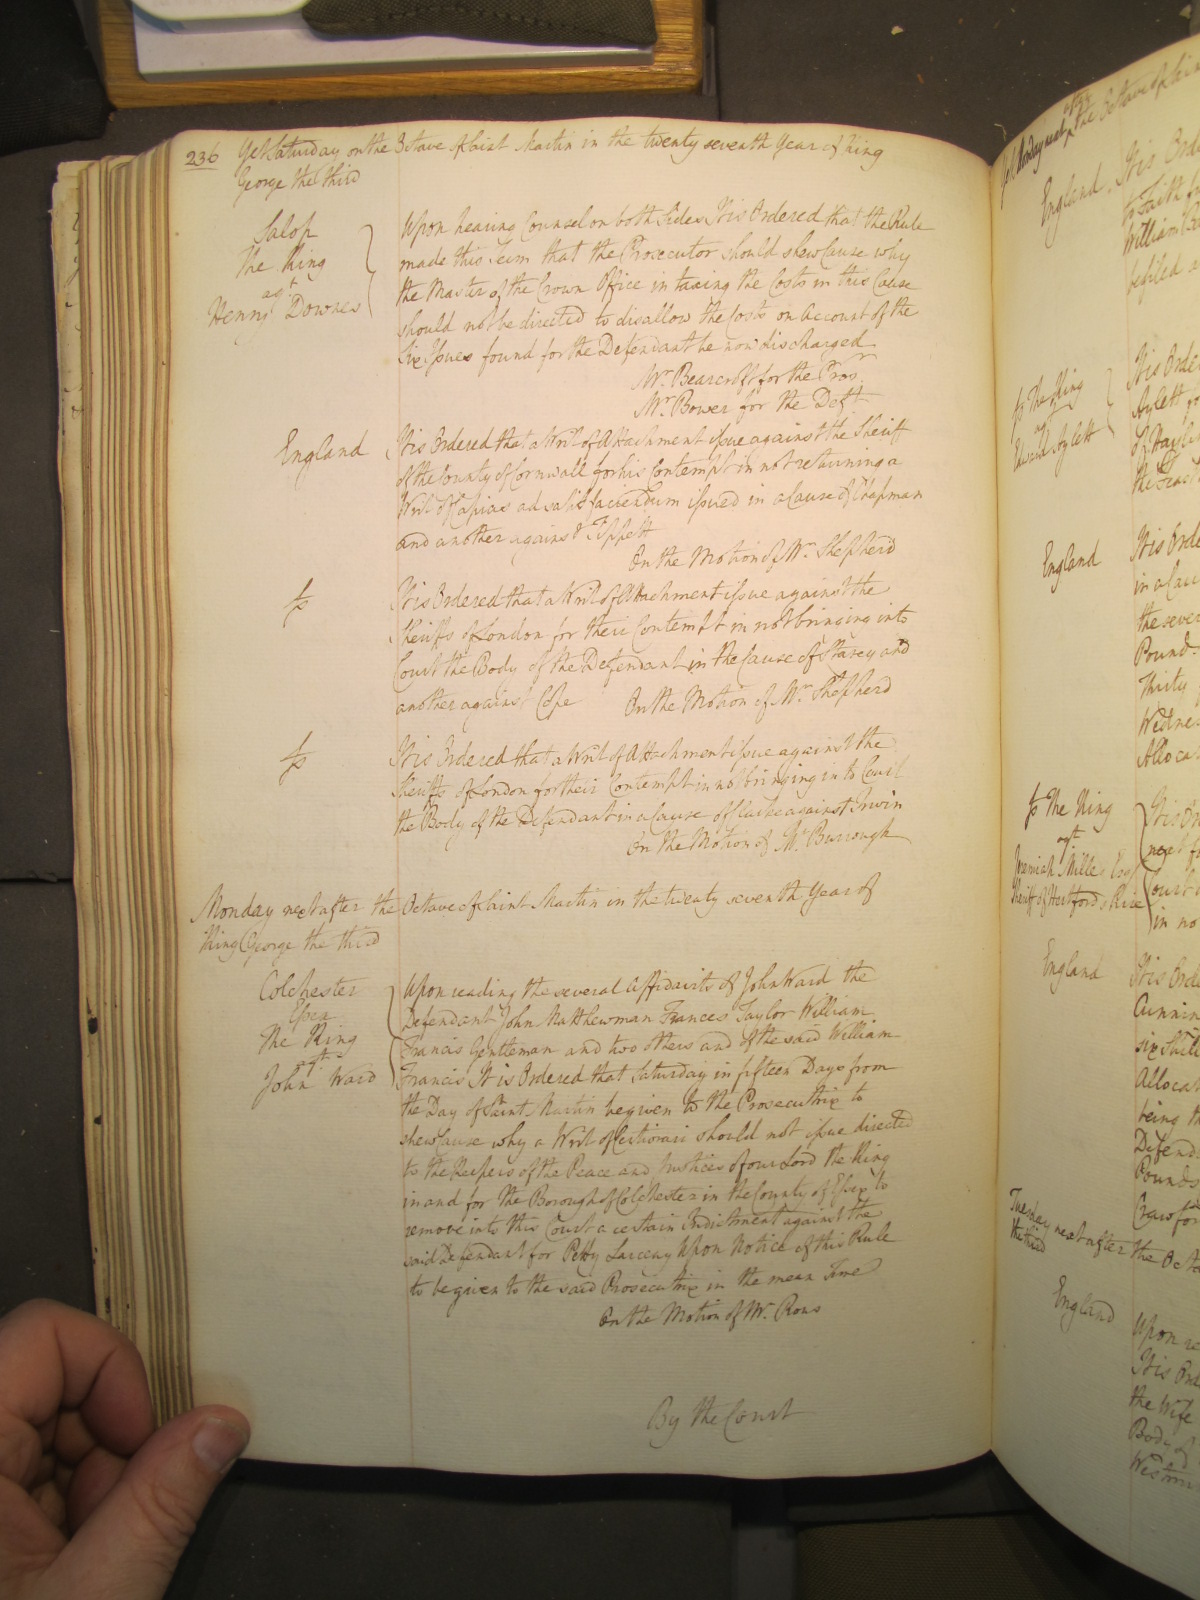 236 Yet Saturday on the Octave of Saint Martin in the twenty seventh Year of King
George the third
Salop
The King
agt
Henry Downes
Upon hearing Counsel on both Sides It is Ordered that the Rule
made this Term that the Prosecutor should shew Cause why
the Master of the Crown Office in taxing the Costs in this Cause
should not be directed to disallow the Costs on Account of the
Six Issues found for the Defendant be now discharged
Mr. Bearcroft for the Prosr.
Mr. Bower for the Deft.
England
It is Ordered that a Writ of Attachment issue against the Sheriff
of the County of Cornwall for his Contempt in not returning a
Writ of Capias ad satisfaciendum issued in a Cause of Chapman
and another against Tippett
On the Motion of Mr. Shepherd
It is Ordered that a Writ of Attachment issue against the
Sheriffs of London for their Contempt in not bringing into
Court the Body of the Defendant in the Cause of Starey and
another against Cope On the Motion of Mr. Shepherd
It is Ordered that a Writ of Attachment issue against the
Sheriffs of London for their Contempt in not bringing into Court
the Body of the Defendant in a Cause of Clarke against Irwin
On the Motion of Mr. Burrough
Monday next after the Octave of Saint Martin in the twenty seventh Year of
King George the third
Colchester
Essex
The King
agt.
John Ward
Upon reading the several Affidavits of John Ward the
Defendant John Matthewman Frances Taylor William
Francis Gentleman and two others and of the said William
Francis It is Ordered that Saturday in fifteen Days from
the Day of Saint Martin be given to the Prosecutrix to
shew Cause why a Writ of Certiorari should not issue directed
to the Keepers of the Peace and Justices of our Lord the King
in and for the Borough of Colchester in the County of Essex to
remove into this Court a certain Indictment against the
said Defendant for Petty Larceny Upon Notice of this Rule
to be given to the said Prosecutrix in the mean Time
On the Motion of Mr. Rous
By the Court
England
It is Orde
William
be filed
The King
agt
Edward Aylett
It is Orde
Aylett
England
It is Orde
in a Cau
the sever
Pound
Thirty
Wednes
Alloca
The King
agt
Jeremiah Milles Esqr
Sheriff of Hertfordshire
It is Or
next
Court
in no
England
It is Orde
Cunnin
six Shill
Allocat
being th
Defenda
Pounds
Crawfor
Tuesday next after the Octa
the third
England
Upon re
It is Orde
the Wife
Body of
Westmin